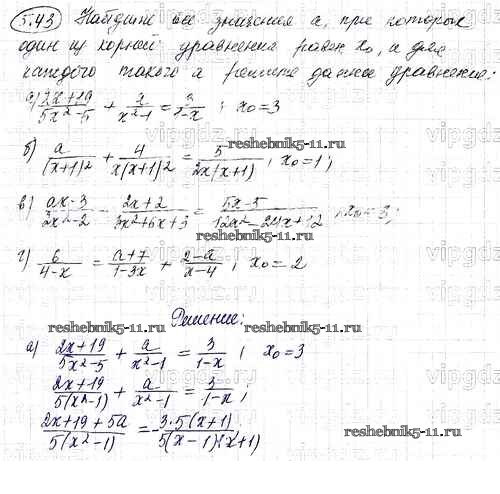 5.43 Найдите все значения a, при которых
один из корней уравнения равен x₀, и для
каждого такого a решите данное уравнение:
а) (2x+19)/(5x²-5) + a/(x²-1) = 3/(1-x) ; x₀=3
reshebnik5-11.ru
б) a/(x+1)² + 4/(x(x+1)²) = 5/(2x(x+1)) ; x₀=1;
в) (ax-3)/(3x²-2) - (2x+2)/(3x²+6x+3) = (5x-5)/(12x²-24x+12)
reshebnik5-11.ru
г) 6/(4-x) = (a+7)/(1-3x) + (2-a)/(x-4) ; x₀=2
Решение:
reshebnik5-11.ru
а) (2x+19)/(5x²-5) + a/(x²-1) = 3/(1-x) ; x₀=3
(2x+19)/(5(x²-1)) + a/(x²-1) = 3/(1-x) ;
(2x+19+5a)/(5(x²-1)) = -3·5(x+1)/(5(x-1)(x+1))
reshebnik5-11.ru